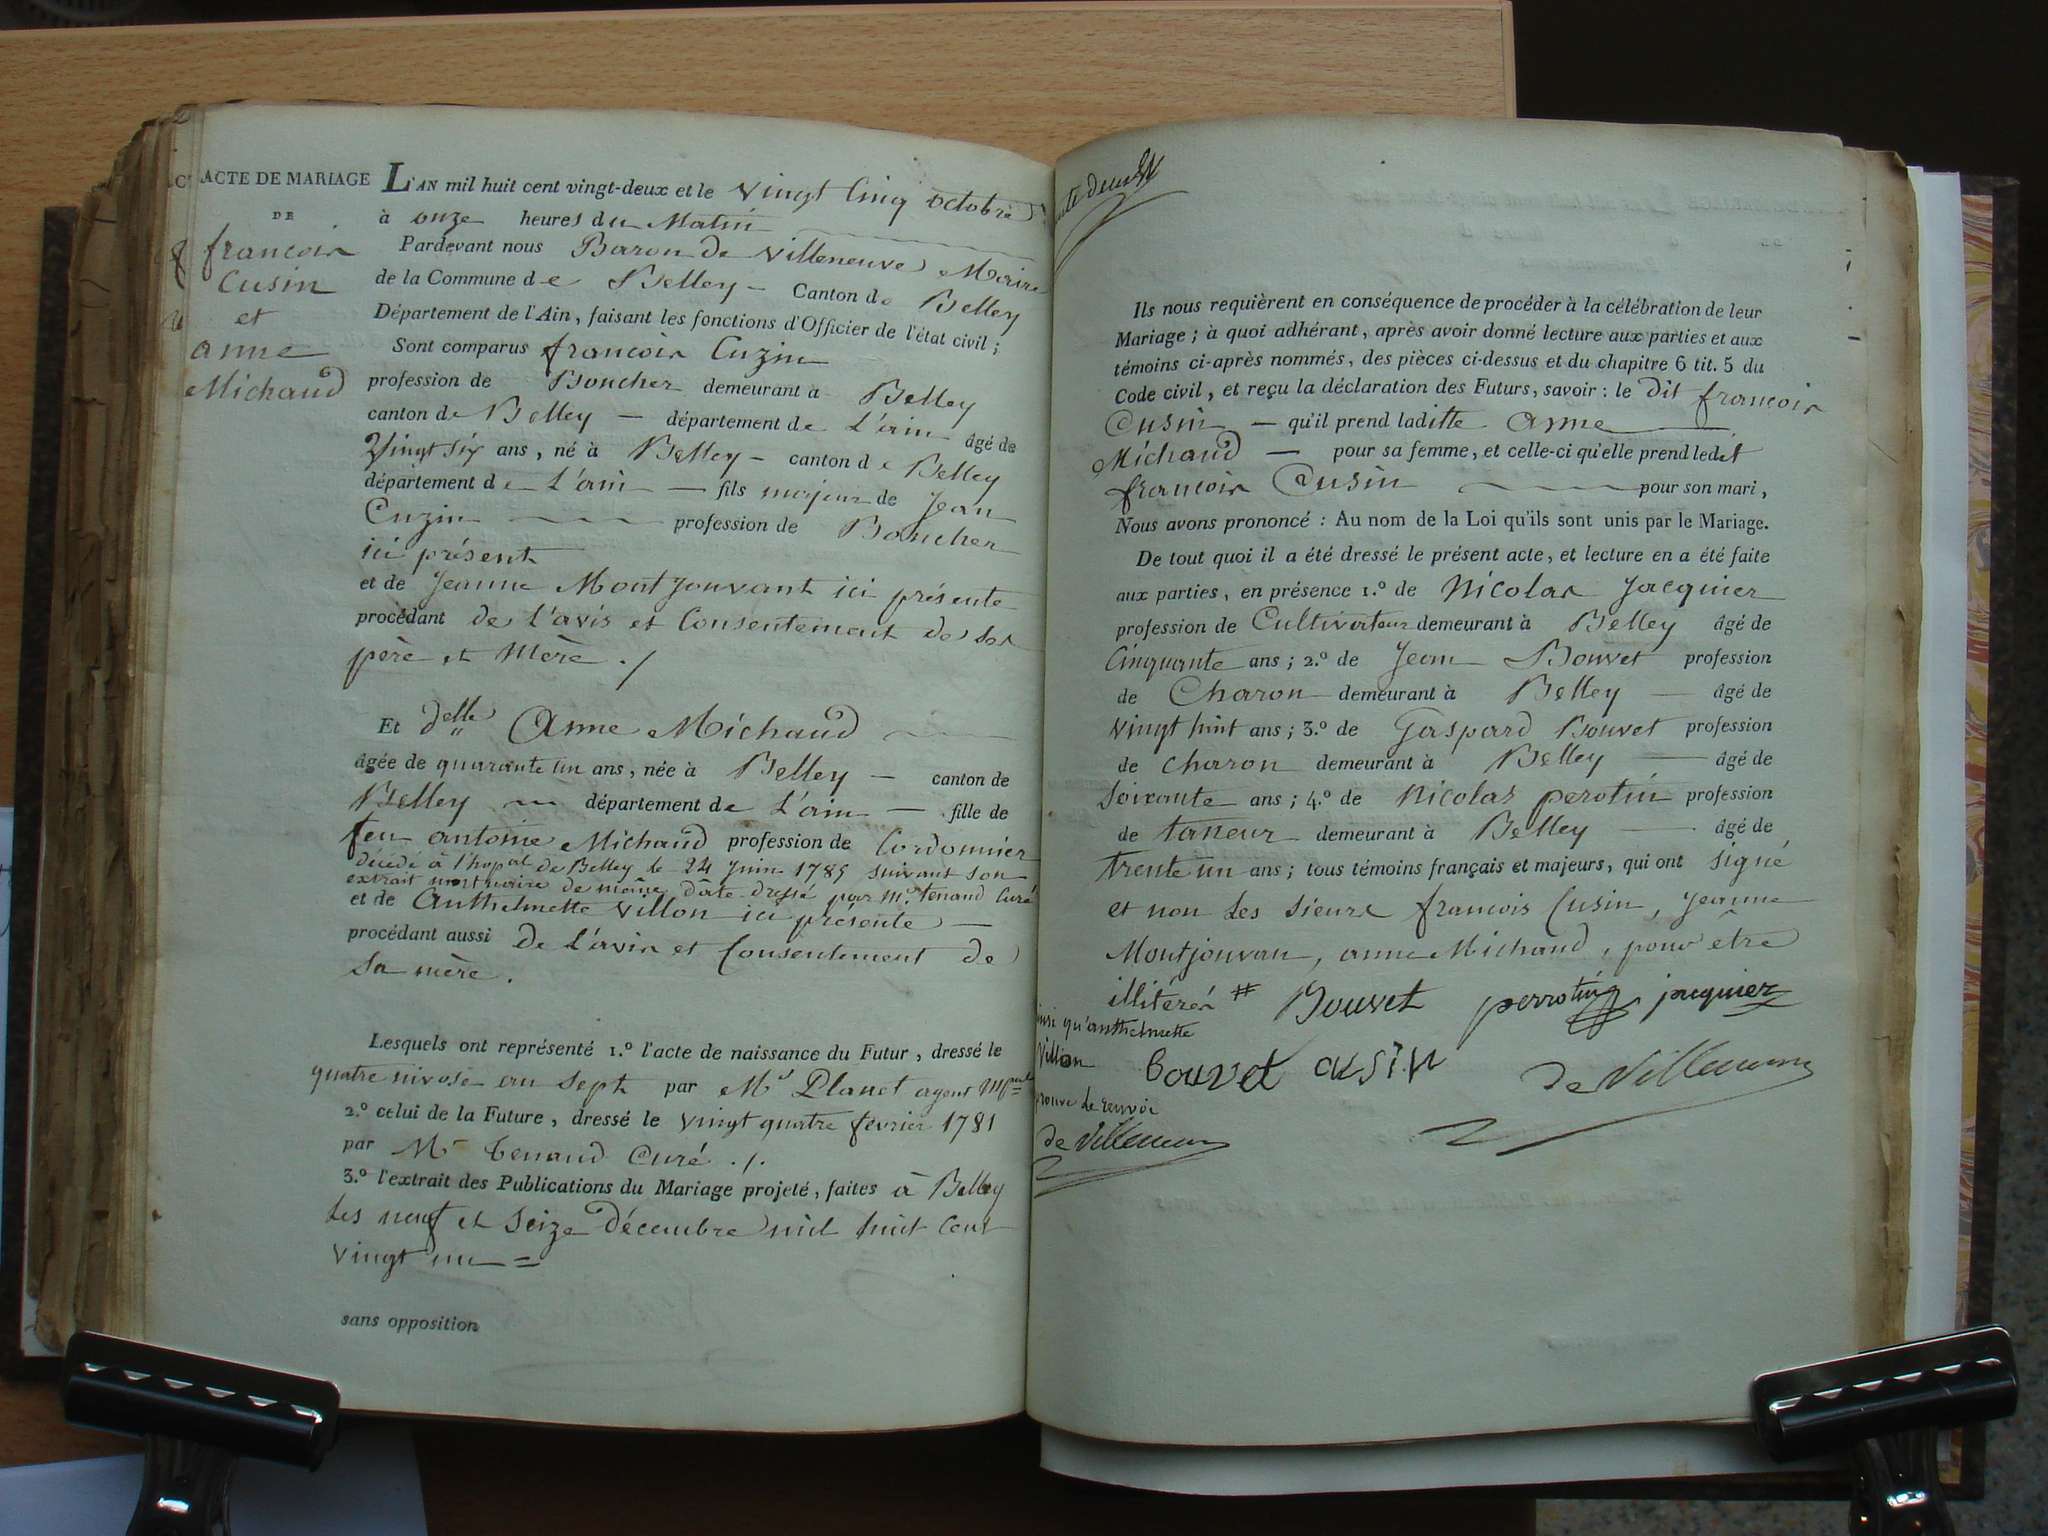 ACTE DE MARIAGE
DE
francois
Cusin
et
anne
Michaud
L'AN mil huit cent vingt-deux et le vingt Cinq octobre
à onze heures du Matin
Pardevant nous Baron de Villeneuve Maire
de la Commune de Belley - Canton de Belley
Département de l'Ain, faisant les fonctions d'Officier de l'état civil ;
Sont comparus francois Cuzin
profession de Boucher demeurant à Belley
canton de Belley - département de L'ain âgé de
Vingt six ans, né à Belley - canton de Belley
département de L'ain - fils majeur de Jean
Cuzin profession de Boucher
ici présent
et de Jeanne Montjouvant ici présente
procédant de L'avis et Consentement de ses
père et Mère ./
Et delle Anne Michaud
âgée de quarante un ans, née à Belley - canton de
Belley département de L'ain - fille de
feu antoine Michaud profession de Cordonnier
décédé à l'hopal de Belley le 24 Juin 1785 suivant son
extrait mortuaire de même date dressé par Mr. Tenand Curé
et de Anthelmette Villon ici présente -
procédant aussi De L'avis et Consentement de
Sa mère.
Lesquels ont représenté 1.º l'acte de naissance du Futur, dressé le
quatre nivose an Sept par Mr Planet agent Mpal
2.º celui de la Future, dressé le vingt quatre février 1781
par Mr Tenand Curé ./.
3.º l'extrait des Publications du Mariage projeté, faites à Belley
Les neuf et Seize Décembre mil huit Cent
vingt un =
sans opposition
Ils nous requièrent en conséquence de procéder à la célébration de leur
Mariage ; à quoi adhérant, après avoir donné lecture aux parties et aux
témoins ci-après nommés, des pièces ci-dessus et du chapitre 6 tit. 5 du
Code civil, et reçu la déclaration des Futurs, savoir : le dit françois
Cusin - qu'il prend laditte anne
Michaud - pour sa femme, et celle-ci qu'elle prend ledit
francois Cusin pour son mari,
Nous avons prononcé : Au nom de la Loi qu'ils sont unis par le Mariage.
De tout quoi il a été dressé le présent acte, et lecture en a été faite
aux parties, en présence 1.º de Nicolas Jacquier
profession de Cultivateur demeurant à Belley âgé de
Cinquante ans ; 2.º de Jean Bouvet profession
de Charon demeurant à Belley - âgé de
vingt huit ans ; 3.º de Gaspard Bouvet profession
de charon demeurant à Belley - âgé de
Soixante ans ; 4.º de Nicolas perotin profession
de taneur demeurant à Belley - âgé de
trente un ans ; tous témoins français et majeurs, qui ont signé
et non Les Sieurs francois Cusin, Jeanne
Montjouvan, anne Michaud, pour être
illitérés # Bouvet perrotin jacquier
qu'anthelmette
Villon
Bouvet cusin de Villeneuve
Le renvoi
de Villeneuve